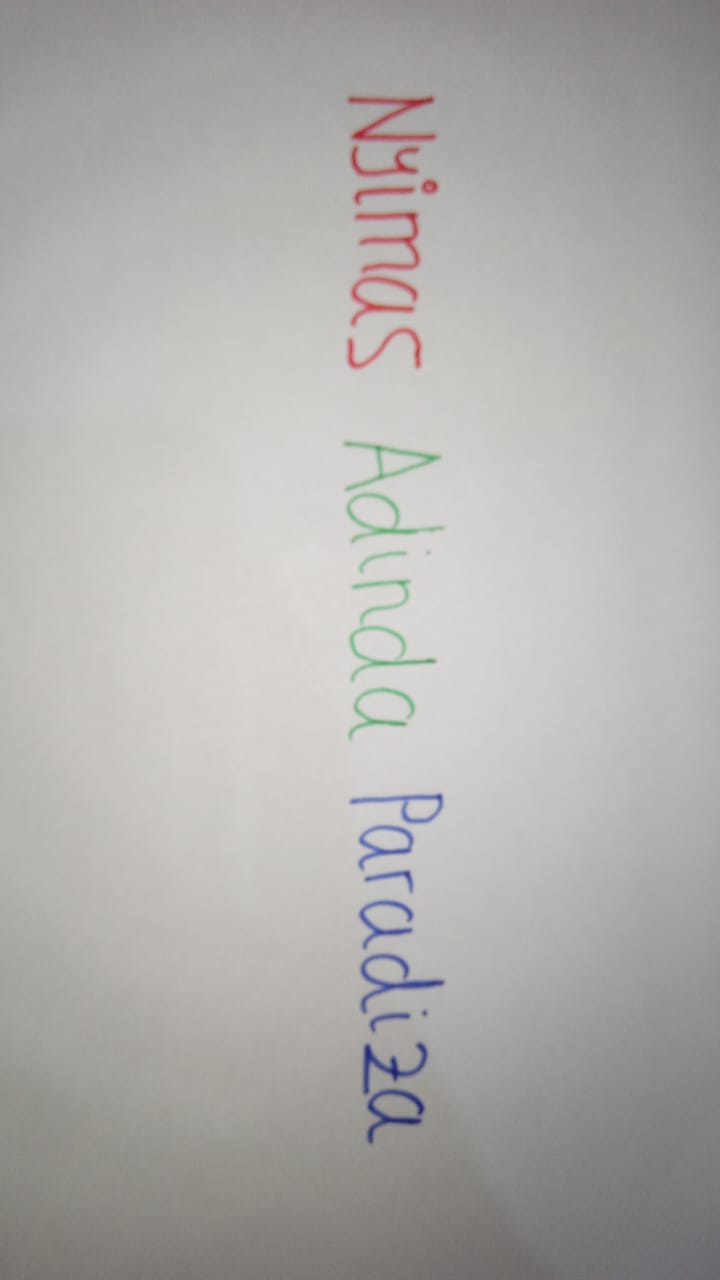 Nyimas Adinda Paradiza